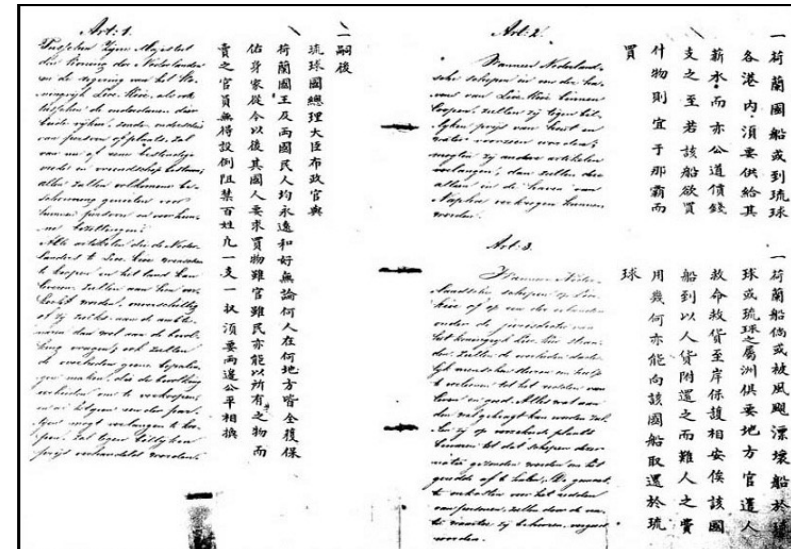 Art: 1.
Tusschen Zijne Majesteit
den Koning der Nederlanden
en de regering van het Ko-
ningrijk Liou Kiou, als ook
tusschen de onderdanen dier
beide rijken, zonder onderscheid
van persoon of plaats, zal
van nu af eene bestendige
vrede en vriendschap bestaan;
allen zullen volkomene be-
scherming genieten voor
hunne personen en voor hun-
ne bezittingen.
Alle artikelen die de Neder-
landers te Liou Kiou wenschen
te koopen en het land kan
leveren, zullen aan hen ver-
kocht worden, onverschillig
of zij zulks aan de ambte-
naren dan wel aan de bevol-
king vragen; ook zullen
de overheden geene bepalin-
gen maken, die de bevolking
verhinderen om te verkoopen,
en al hetgeen een der par-
tijen mogt verlangen te koo-
pen, zal tegen billijken
prijs verhandeld worden.
一嗣後
琉球國總理大臣布政官與
荷蘭國王及兩國民人均永遠和好無論何人在何地方皆全獲保
佑身家從今以後其國人要求買物雖官雖民亦能以所有之物而
賣之官員無得設例阻禁百姓凡一支一收須要兩邊公平相換
Art: 2.
Wanneer Nederland-
sche schepen in een der ha-
vens van Liou Kiou binnen
loopen, zullen zij tegen bil-
lijken prijs van hout en
water voorzien worden;
mogten zij andere artikelen
verlangen, dan zullen die
alleen in de haven van
Napha verkregen kunnen
worden.
一荷蘭國船或到琉球
各港内須要供給其
薪水而亦公道價錢
支之至若該船欲買
什物則宜于那霸而
買
Art: 3.
Wanneer Neder-
landsche schepen op Liou
Kiou of op een der eilanden
onder de jurisdictie van
het koningrijk Liou Kiou stran-
den, zullen de overheden dade-
lijk menschen sturen om hulp
te verleenen tot het redden van
leven en goed. Alles wat aan
den wal gebragt kan worden zal
door hen op verzekerde plaats
bewaren tot dat schepen daar-
waarts gezonden worden om het
geredde af te halen. De gemaak-
te onkosten voor het redden
van personen, zullen door de na-
tie waartoe zij behooren, vergoed
worden.
一荷蘭船倘或被風颶漂壞船於琉
球或琉球之屬洲俱要地方官遣人
救命救貨至岸保護相安俟該國
船到以人貨附還之而難人之費
用幾何亦能向該國船取還於琉
球